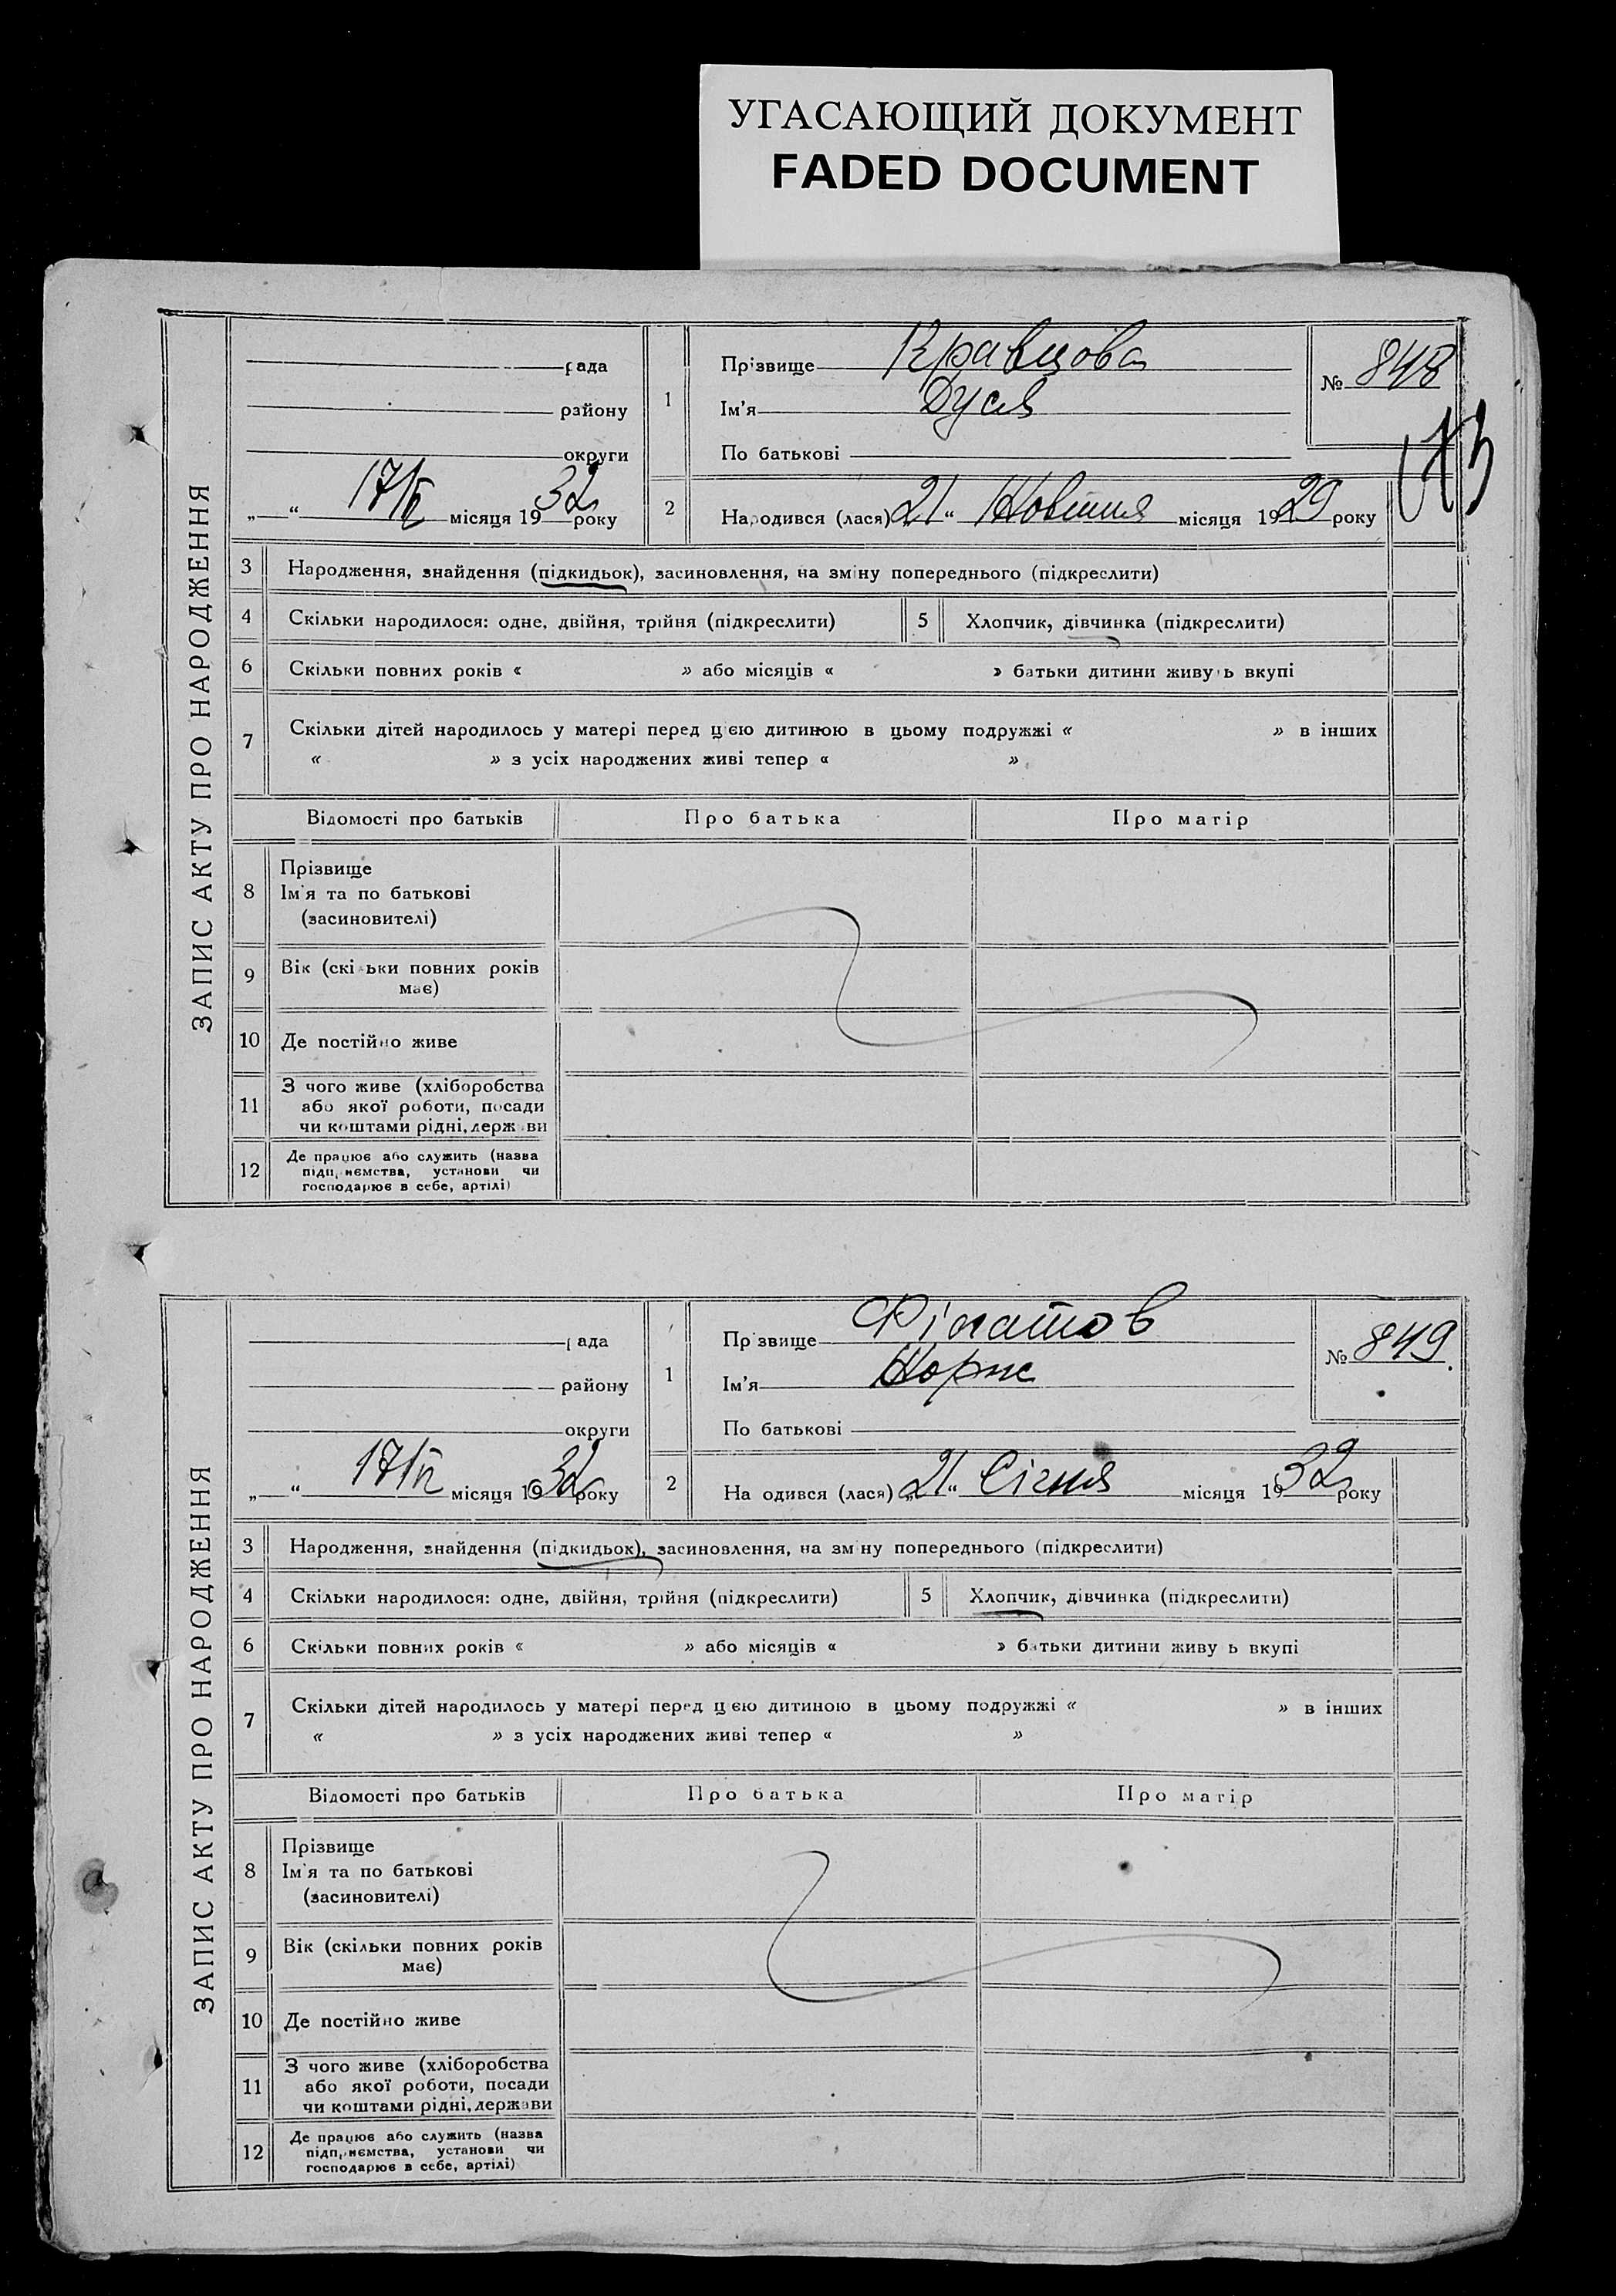 УГАСАЮЩИЙ ДОКУМЕНТ
FADED DOCUMENT
ЗАПИС АКТУ ПРО НАРОДЖЕННЯ
рада
району
округи
„ “ 17/ місяця 1932 року
1
Прізвище Кравцова
Ім'я Дуся
По батькові
№ 848
2
Народився (лася) 21 “ Жовтня місяця 1929 року
3 Народження, знайдення (підкидьок), засиновлення, на зміну попереднього (підкреслити)
4 Скільки народилося: одне, двійня, трійня (підкреслити)
5 Хлопчик, дівчинка (підкреслити)
6 Скільки повних років « » або місяців « » батьки дитини живу ь вкупі
7 Скільки дітей народилось у матері перед цією дитиною в цьому подружжі « » в інших
« » з усіх народжених живі тепер « »
Відомості про батьків Про батька Про матір
8 Прізвище
Ім'я та по батькові
(засиновителі)
9 Вік (скільки повних років
має)
10 Де постійно живе
11 З чого живе (хліборобства
або якої роботи, посади
чи коштами рідні, держави
12 Де працює або служить (назва
підприємства, установи чи
господарює в себе, артілі)
ЗАПИС АКТУ ПРО НАРОДЖЕННЯ
рада
району
округи
„ “ 17/ місяця 1932 року
1
Прізвище Філатов
Ім'я
По батькові
№ 849.
2
На одився (лася) „21“ Січня місяця 1932 року
3 Народження, знайдення (підкидьок), засиновлення, на зміну попереднього (підкреслити)
4 Скільки народилося: одне, двійня, трійня (підкреслити)
5 Хлопчик, дівчинка (підкреслити)
6 Скільки повних років « » або місяців « » батьки дитини живу ь вкупі
7 Скільки дітей народилось у матері перед цією дитиною в цьому подружжі « » в інших
« » з усіх народжених живі тепер « »
Відомості про батьків Про батька Про матір
8 Прізвище
Ім'я та по батькові
(засиновителі)
9 Вік (скільки повних років
має)
10 Де постійно живе
11 З чого живе (хліборобства
або якої роботи, посади
чи коштами рідні, держави
12 Де працює або служить (назва
підприємства, установи чи
господарює в себе, артілі)